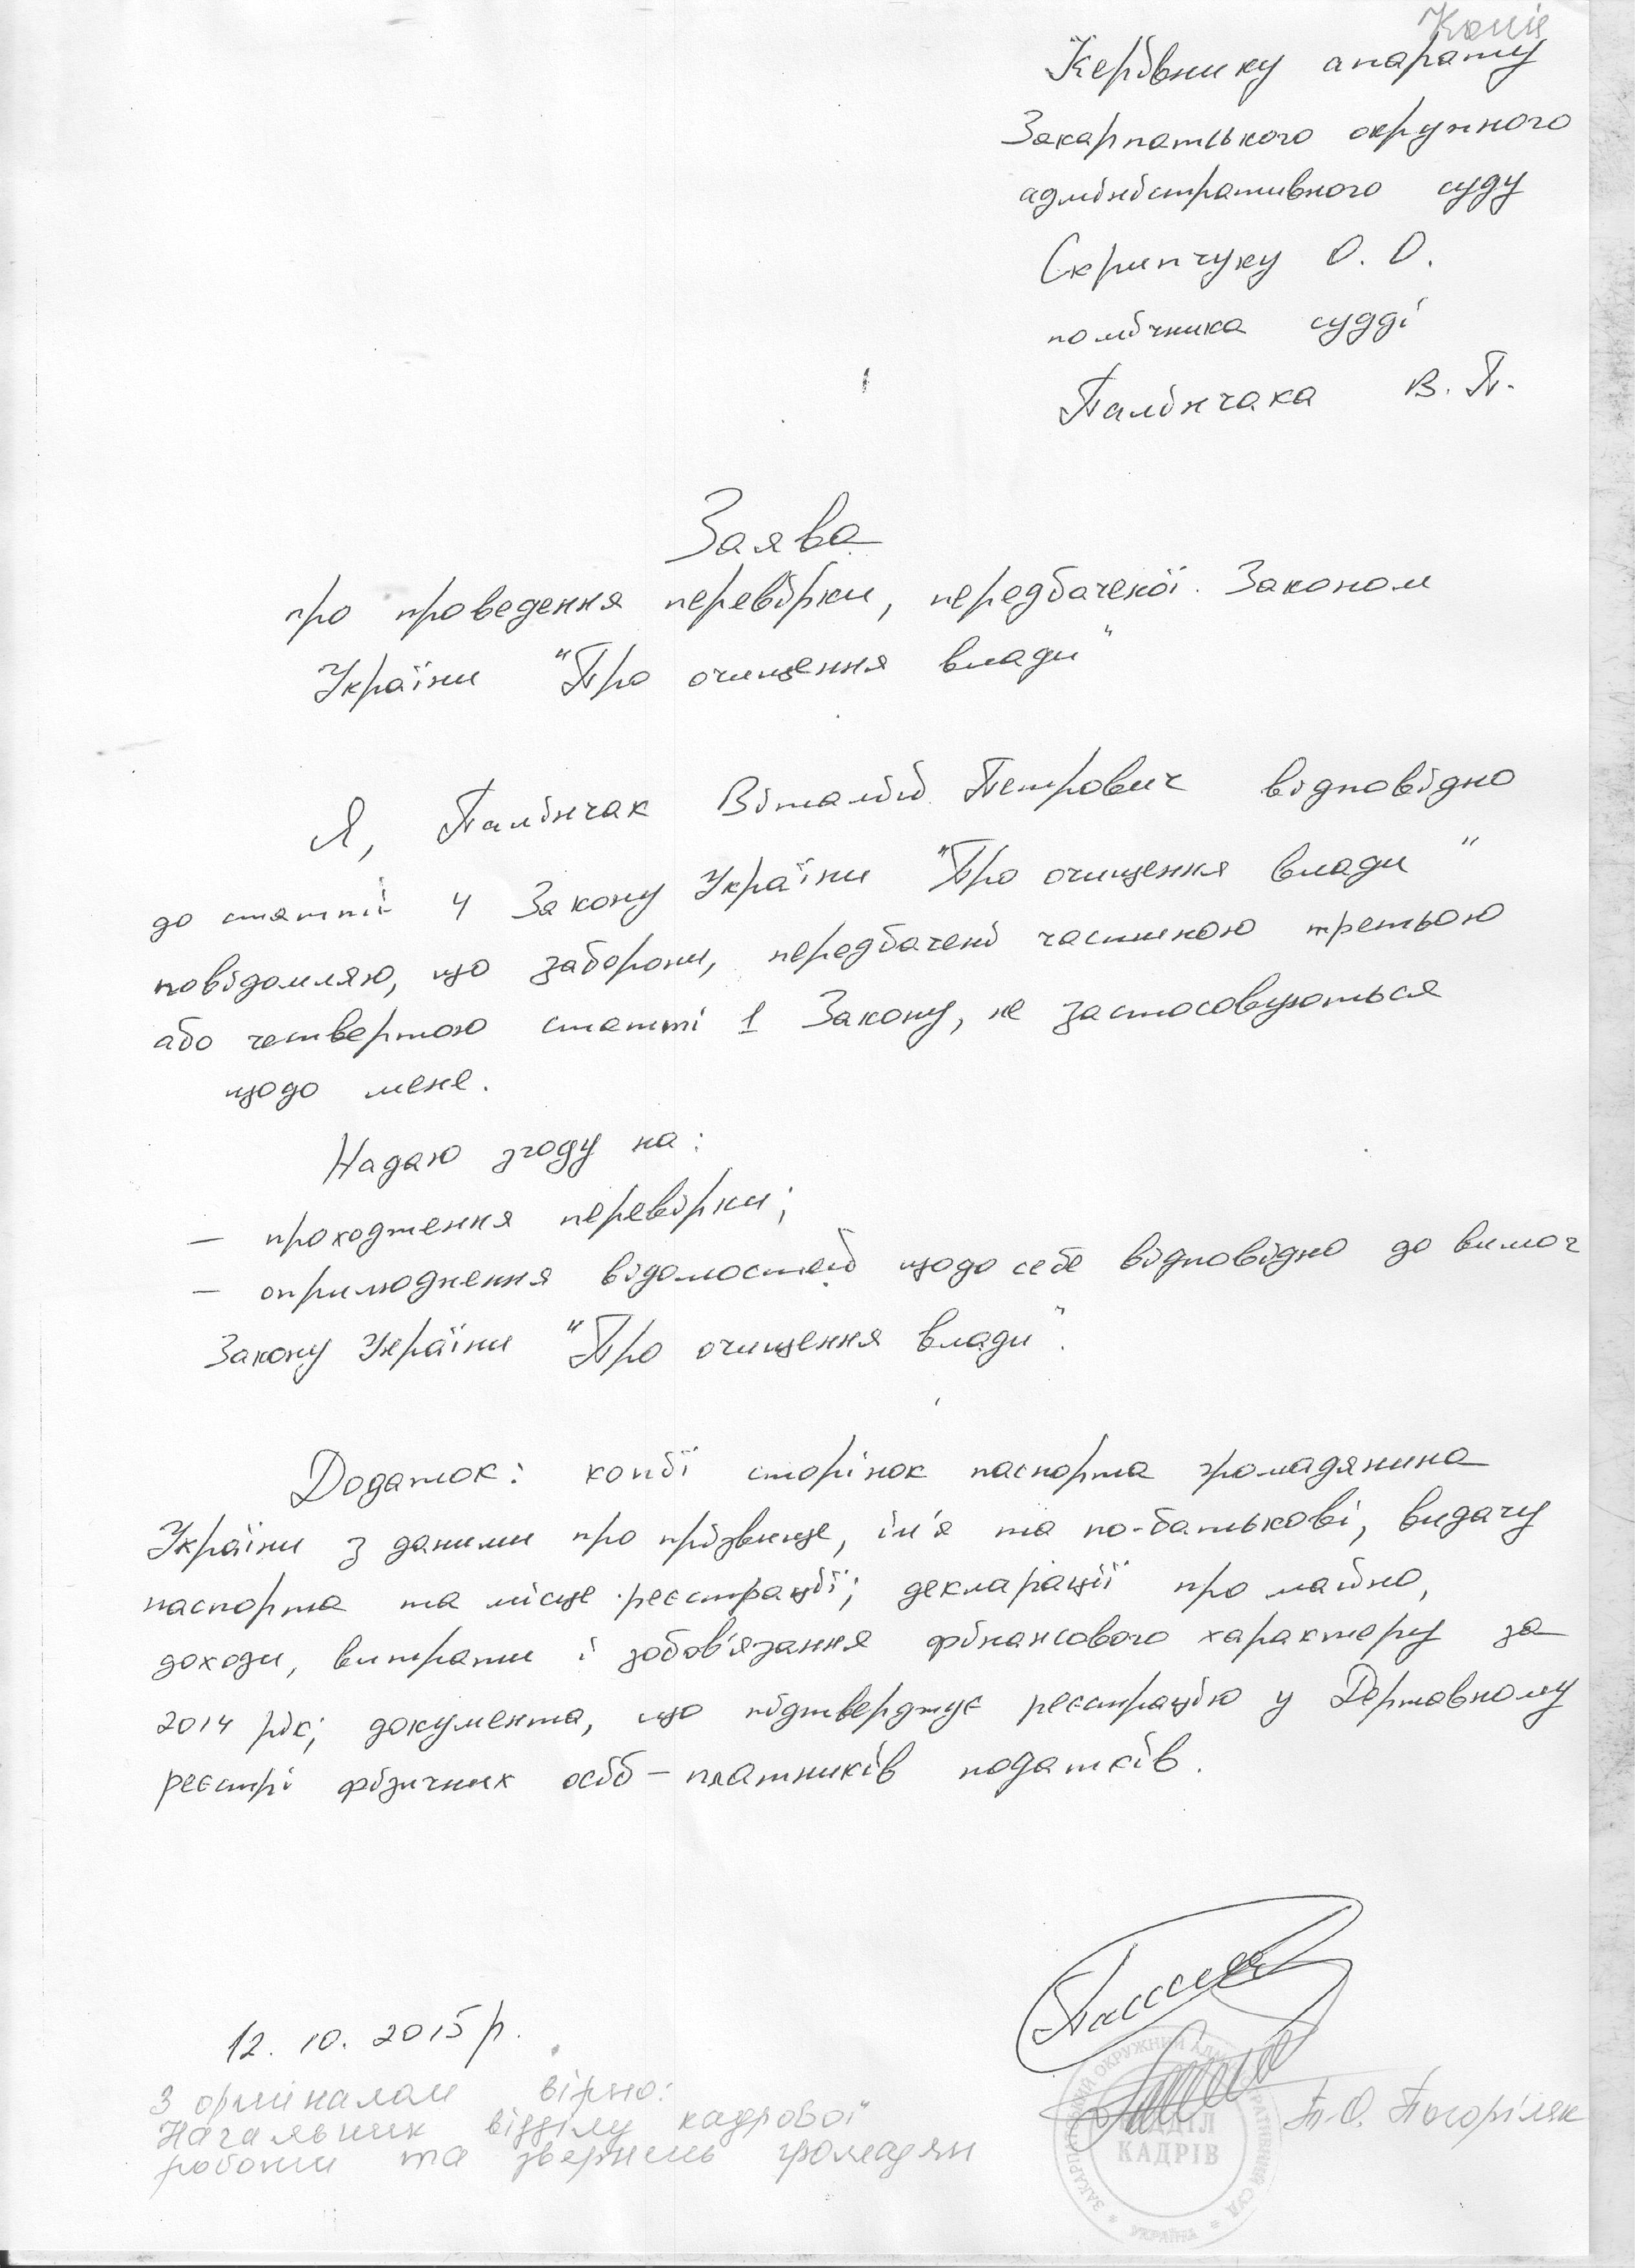 Копія
Керівнику апарату
Закарпатського окружного
адміністративного суду
Скрипчуку О. О.
помічника судді
Палінчака В. П.
Заява
про проведення перевірки, передбаченої Законом
України "Про очищення влади"
Я, Палінчак Віталій Петрович відповідно
до статті 4 Закону України "Про очищення влади"
повідомляю, що заборони, передбачені частиною третьою
або четвертою статті 1 Закону, не застосовуються
щодо мене.
Надаю згоду на:
— проходження перевірки;
— оприлюднення відомостей щодо себе відповідно до вимог
Закону України "Про очищення влади".
Додаток: копії сторінок паспорта громадянина
України з даними про прізвище, ім'я та по-батькові, видачу
паспорта та місце реєстрації; декларації про майно,
доходи, витрати і зобов'язання фінансового характеру за
2014 рік; документа, що підтверджує реєстрацію у Державному
реєстрі фізичних осіб – платників податків.
12. 10. 2015 р.
З оригіналом вірно:
Начальник відділу кадрової
роботи та звернень громадян
П.О. Погоріляк
ВІДДІЛ
КАДРІВ
УКРАЇНА